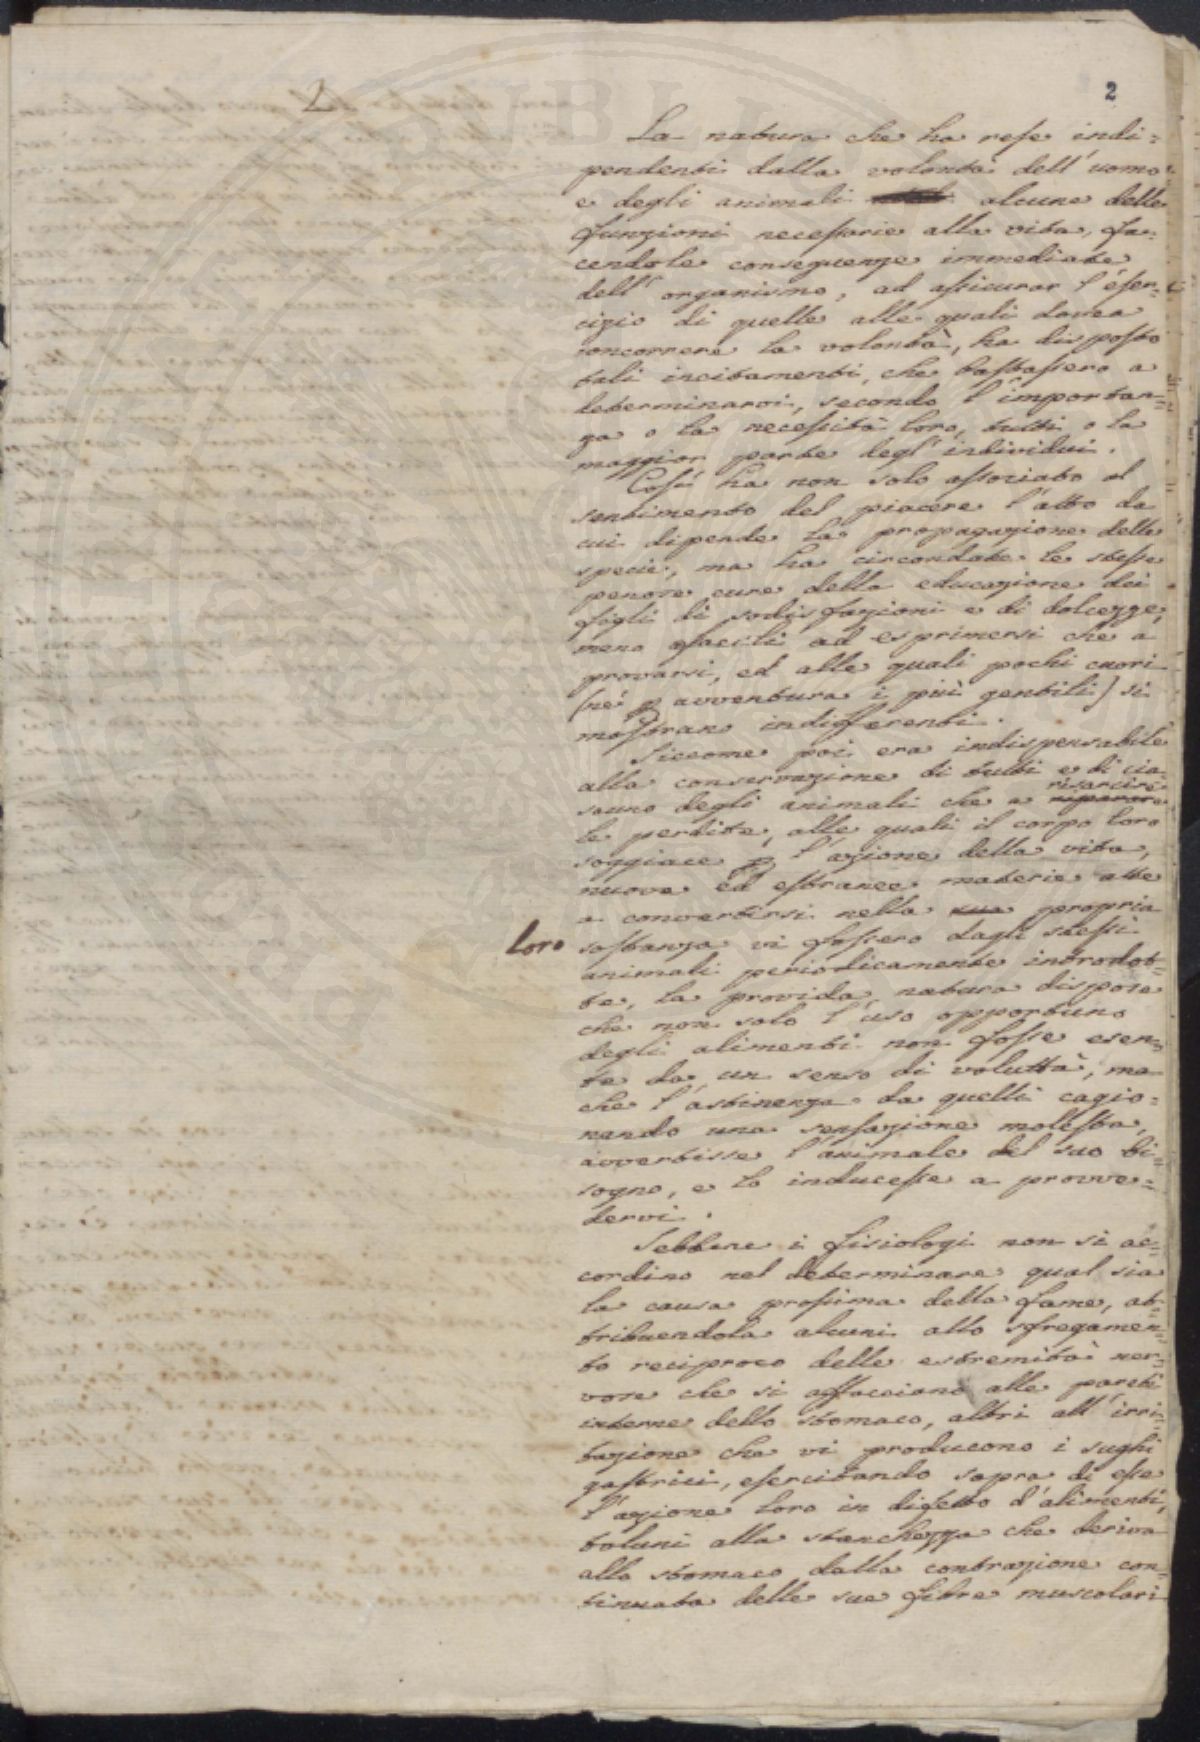 2
La natura che ha rese indi=
pendenti dalla volontà dell'uomo
e degli animali alcune delle
funzioni necessarie alla vita, fa=
cendole conseguenze immediate
dell'organismo, ad assicurar l'eser=
cizio di quelle alle quali dovea
concorrere la volontà, ha disposto
tali incitamenti, che bastassero a
determinarvi, secondo l'importan=
za o la necessità loro, tutti o la
maggior parte degl'individui.
Così ha non solo associato al
sentimento del piacere l'atto da
cui dipende la propagazione delle
specie, ma ha circondate le stesse
penose cure della educazione dei
figli di sodisfazioni e di dolcezze,
meno facili ad esprimersi che a
provarsi, ed alle quali pochi cuori
(nè p avventura i più gentili) si
mostran indifferenti.
Siccome poi era indispensabile
alla conservazione di tutti e di cia=
risarcire
scuno degli animali che a riparare
le perdite, alle quali il corpo loro
soggiace p l'azione della vita,
nuove ed estranee materie atte
a convertirsi nella sua propria
Loro sostanza vi fossero dagli stessi
animali periodicamente introdot=
te, la provida natura dispose
che non solo l'uso opportuno
degli alimenti non fosse esen=
te da un senso di voluttà, ma
che l'astinenza da quelli cagio=
nando una sensazione molesta,
avvertisse l'animale del suo bi=
sogno, e lo inducesse a provve=
dervi.
Sebbene i fisiologi non si ac=
cordino nel determinare qual sia
la causa prossima della fame, at=
tribuendola alcuni allo sfregamen=
to reciproco delle estremità ner=
vose che si affacciano alle pareti
interne dello stomaco, altri all'irri=
tazione che vi producono i sughi
gastrici, esercitando sopra di esse
l'azione loro in difetto d'alimenti,
taluni alla stanchezza che deriva
allo stomaco dalla contrazione con=
tinuata delle sue fibre muscolari